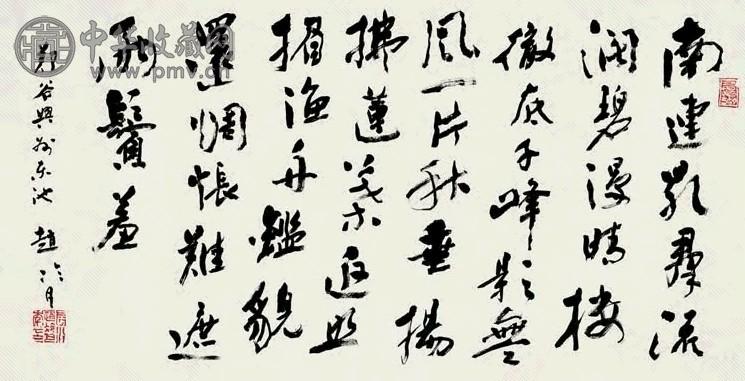 南連乳郡流
阔碧浸晴楼
徹底千峰影無
風一片秋垂楊
拂蓮葉返照
媚渔舟鑑貌
還惆悵難遮
兩鬢羞
鄭谷興州東池 趙冷月
中华收藏网
www.pmv.cn